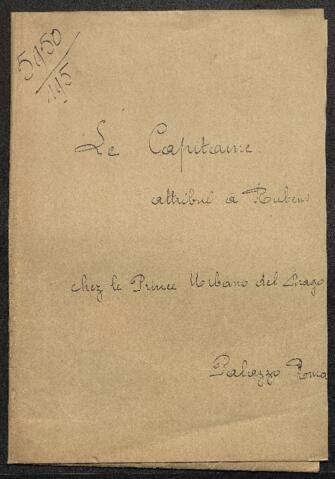 5950
195
Le Capitaine
attribué à Rubens
chez le Prince Urbano del Drago
Palazzo Roma